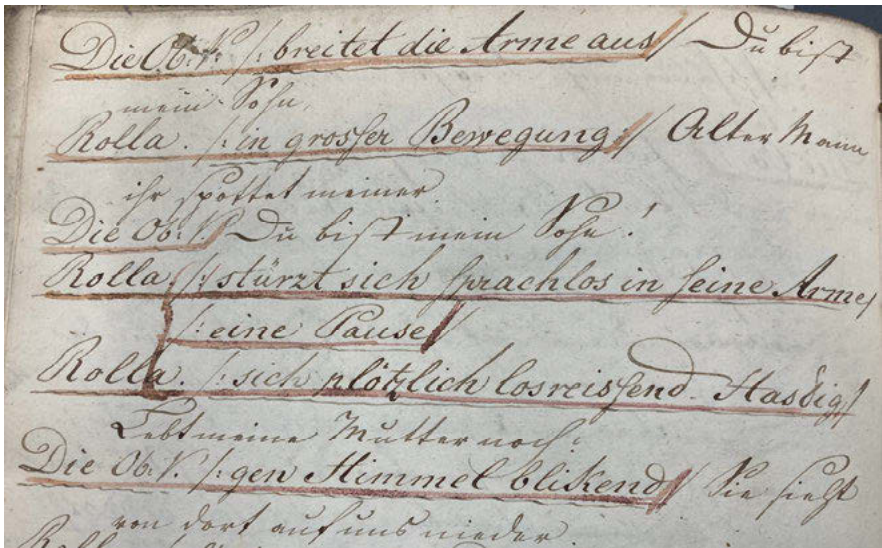 Die Ob. V. /: breitet die Arme aus / Du bist
mein Sohn.
Rolla. /: in grosser Bewegung :/ Alter Mann
ihr spottet meiner.
Die Ob. V. Du bist mein Sohn!
Rolla /: stürzt sich sprachlos in seine Arme/
/: eine Pause /
Rolla. /: sich plötzlich losreissend - Hasdig/
Lebt meine Mutter noch:
Die Ob. V. /: gen Himmel blikend / Sie sieht
von dort auf uns nieder.